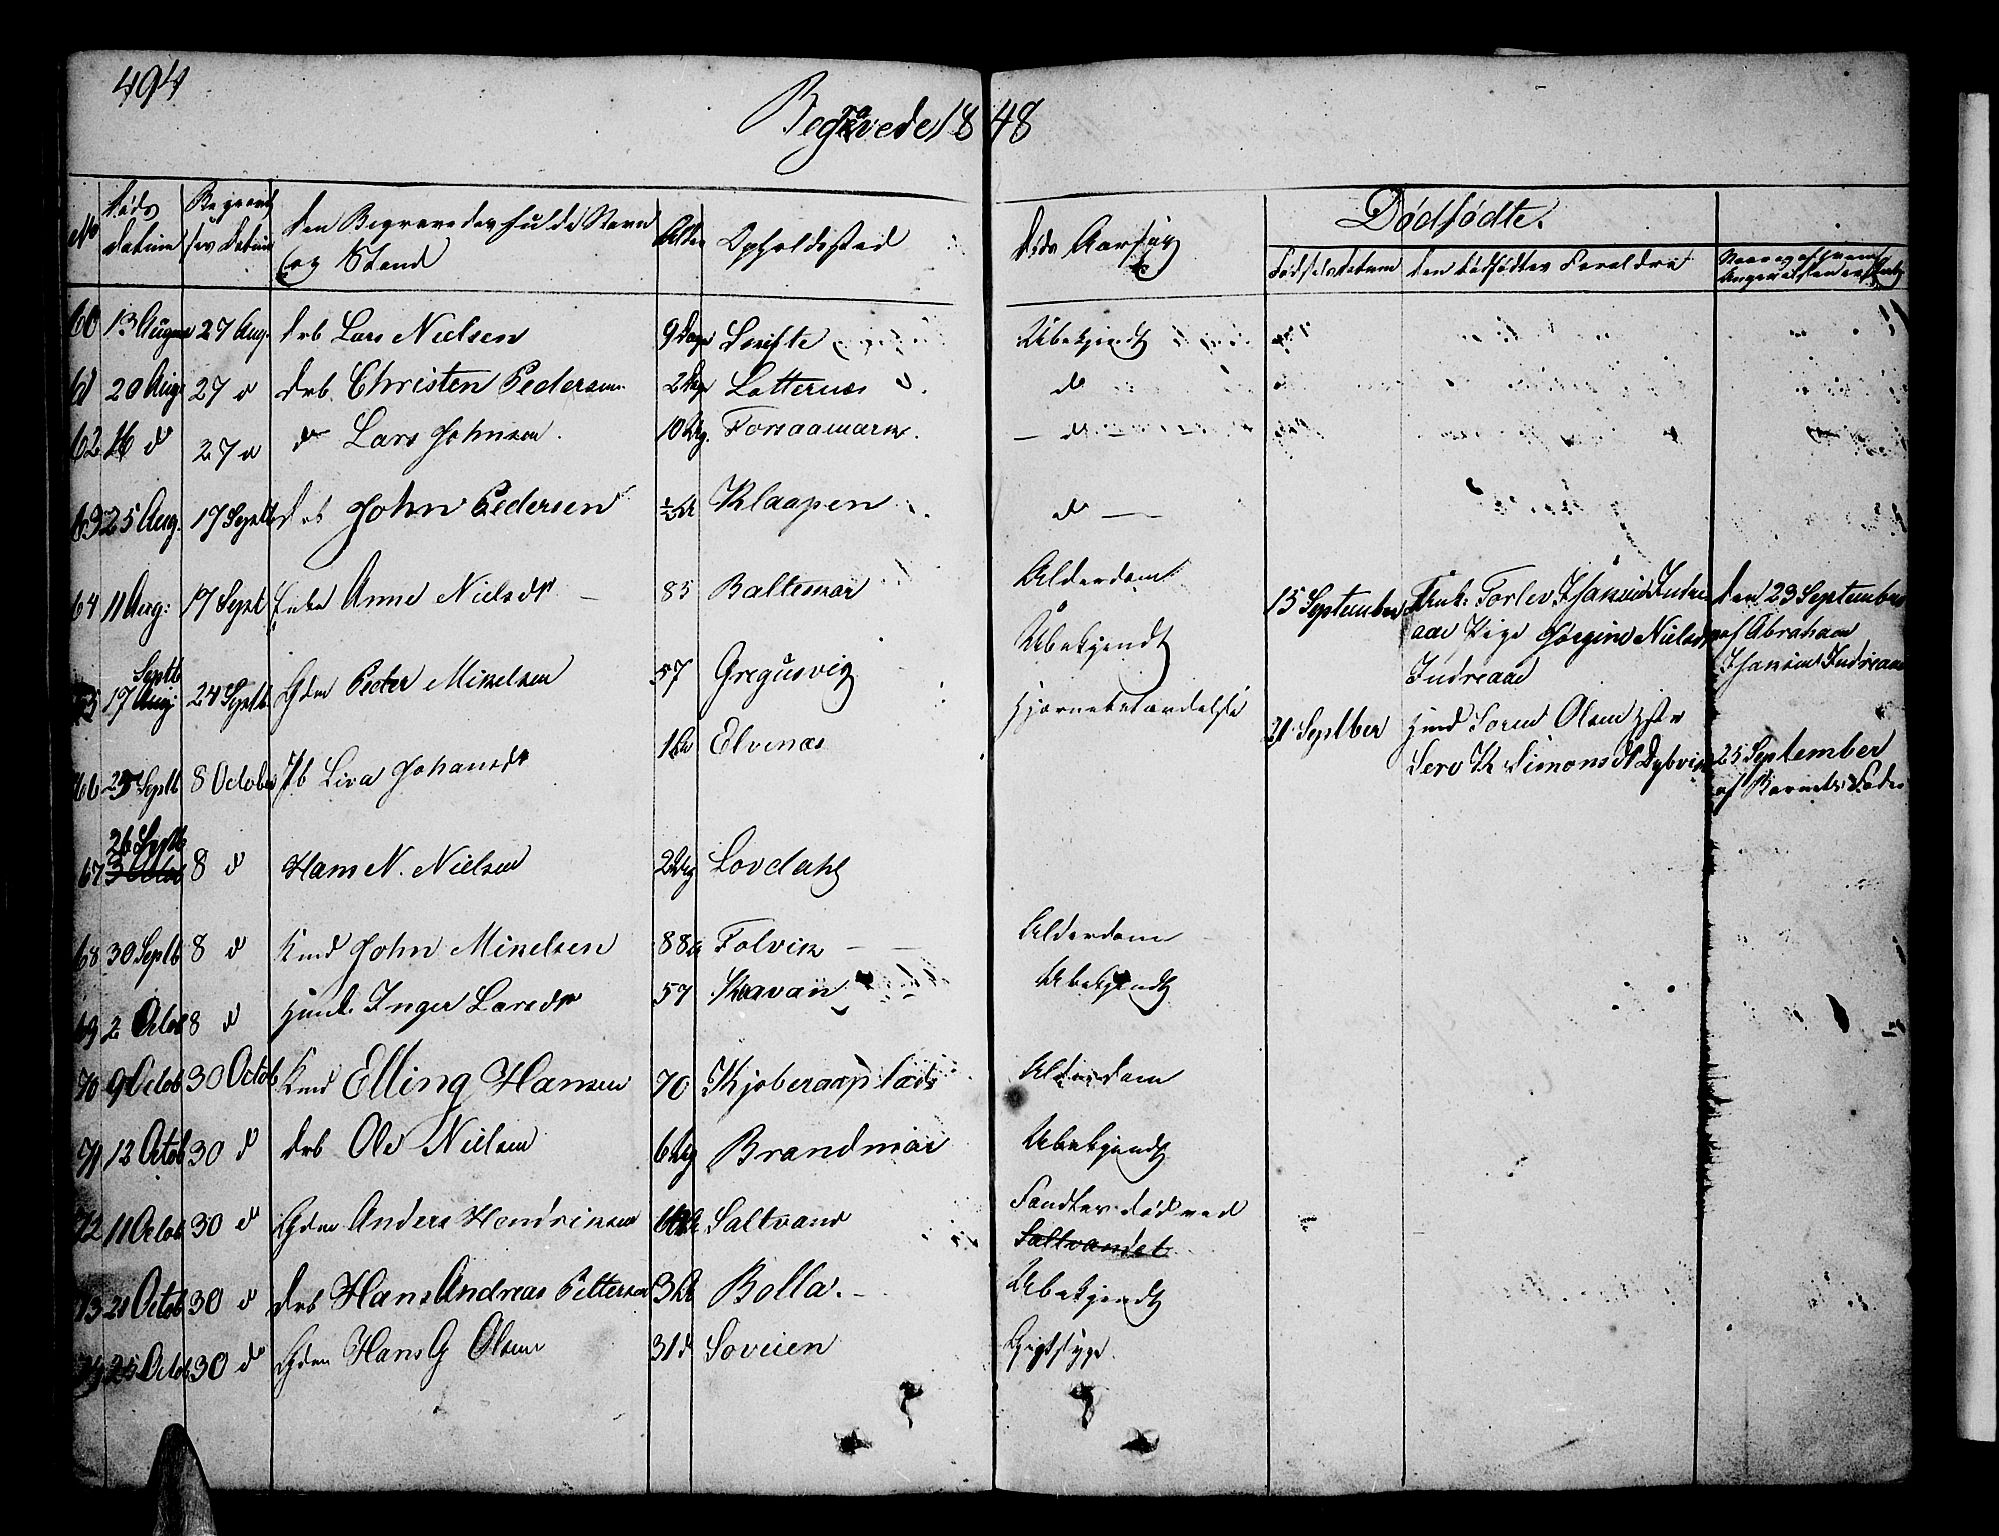 494
Begravede 1848
No Døds Datum Begravelses Datum Den Begravedes fulde Navn og Stand Alder Opholdssted Døds Aarsag Dødfødte.
Fødselsdatum Den Dødfødtes Forældre Naar og af hvem Angivelsen er skeet
60 13 August 27 Aug. drb Lars Nielsen 9 Dage Ubekjendt
61 20 Aug 27 d drb Christen Pedersen 2 Lotternæs d
62 16 d 27 d d Lars Johnsen 10 Forsaamark. d
63 25 Aug. 17 Septb drb John Pedersen ½ Klaapen d
64 11 Aug: 17 Sept Enke Anne Nielsdr 85 Baltemar Alderdom
15 September Torlev Indreaae Pige Jørgine Nielsdr Indreaae den 23 September af Abraham Indreaae
65 17 Septb Aug: 24 Septb Gdm Peder Mikelsen 57 Gregusvig Ubekjendt
66 25 Septb 8 October Pb Liva Johansdr 1 Elvenæs Hjernebetændelse
21 Septber Hmd Søren Olsen Hstr Sero K Simons D Dybvik 25 September af Barnets Fader
67 26 Septb 3 Octob 8 d Hans N. Nielsen 2 Lovdahl
68 30 Septb 8 d Kmd John Mikelsen 88 Folvik Alderdom
69 2 Octob 8 d Hmds Inger Larsdr 57 Kravan Ubekjendt
70 9 Octob 30 Octob Kmd Elling Hansen 70 Kjøberaaplads Alderdom
71 12 Octob 30 d drb Ole Nielsen 6 Brandmoe Ubekjendt
72 11 Octob 30 d Gdm Anders Hendriksen Saltvand Fandtes død ved
Saltvandet
73 21 Octob 30 d drb Hans Andreas Pettersen 3 Bolla. Ubekjendt
74 25 Octob 30 d Gdm Hans G Olsen 31 d Soveien Gigtsyge.